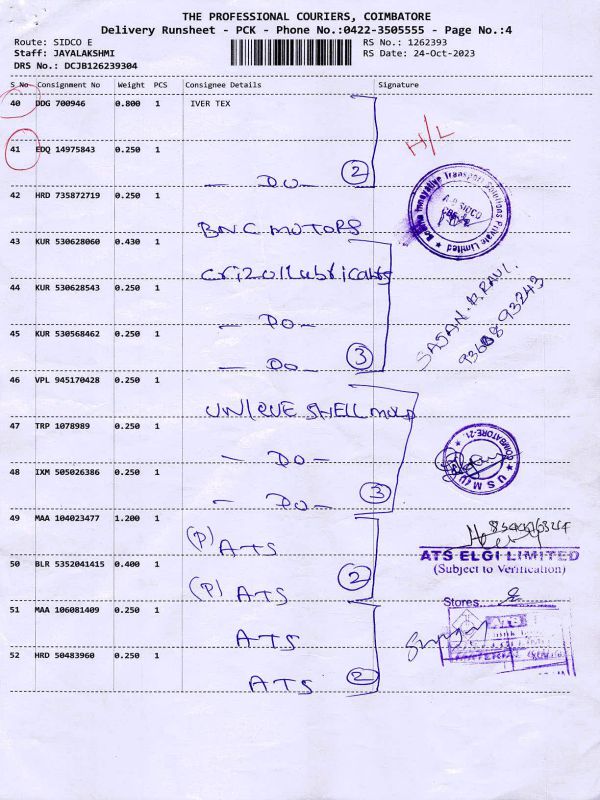 THE PROFESSIONAL COURIERS, COIMBATORE
Delivery Runsheet - PCK - Phone No.:0422-3505555 - Page No.:4
Route: SIDCO E RS No.: 1262393
Staff: JAYALAKSHMI RS Date: 24-Oct-2023
DRS No.: DCJB126239304
S No Consignment No Weight PCS Consignee Details Signature
40 DDG 700946 0.800 1 IVER TEX
H/L
41 EDQ 14975843 0.250 1
- DO - 2
42 HRD 735872719 0.250 1
BNC MOTORS
43 KUR 530628060 0.430 1
Crizol lubricants
44 KUR 530628543 0.250 1
- DO -
SAJAN.R.RAVI.
45 KUR 530568462 0.250 1
- DO - 3
46 VPL 945170428 0.250 1
UNIQUE SHELL MOLD
47 TRP 1078989 0.250 1
- DO -
COIMBATORE-21.
48 IXM 505026386 0.250 1
- DO - 3
49 MAA 104023477 1.200 1
(P) ATS
ATS ELGI LIMITED
(Subject to Verification)
50 BLR 5352041415 0.400 1
(P) ATS 2
Stores
51 MAA 106081409 0.250 1
ATS
52 HRD 50483960 0.250 1
ATS 2